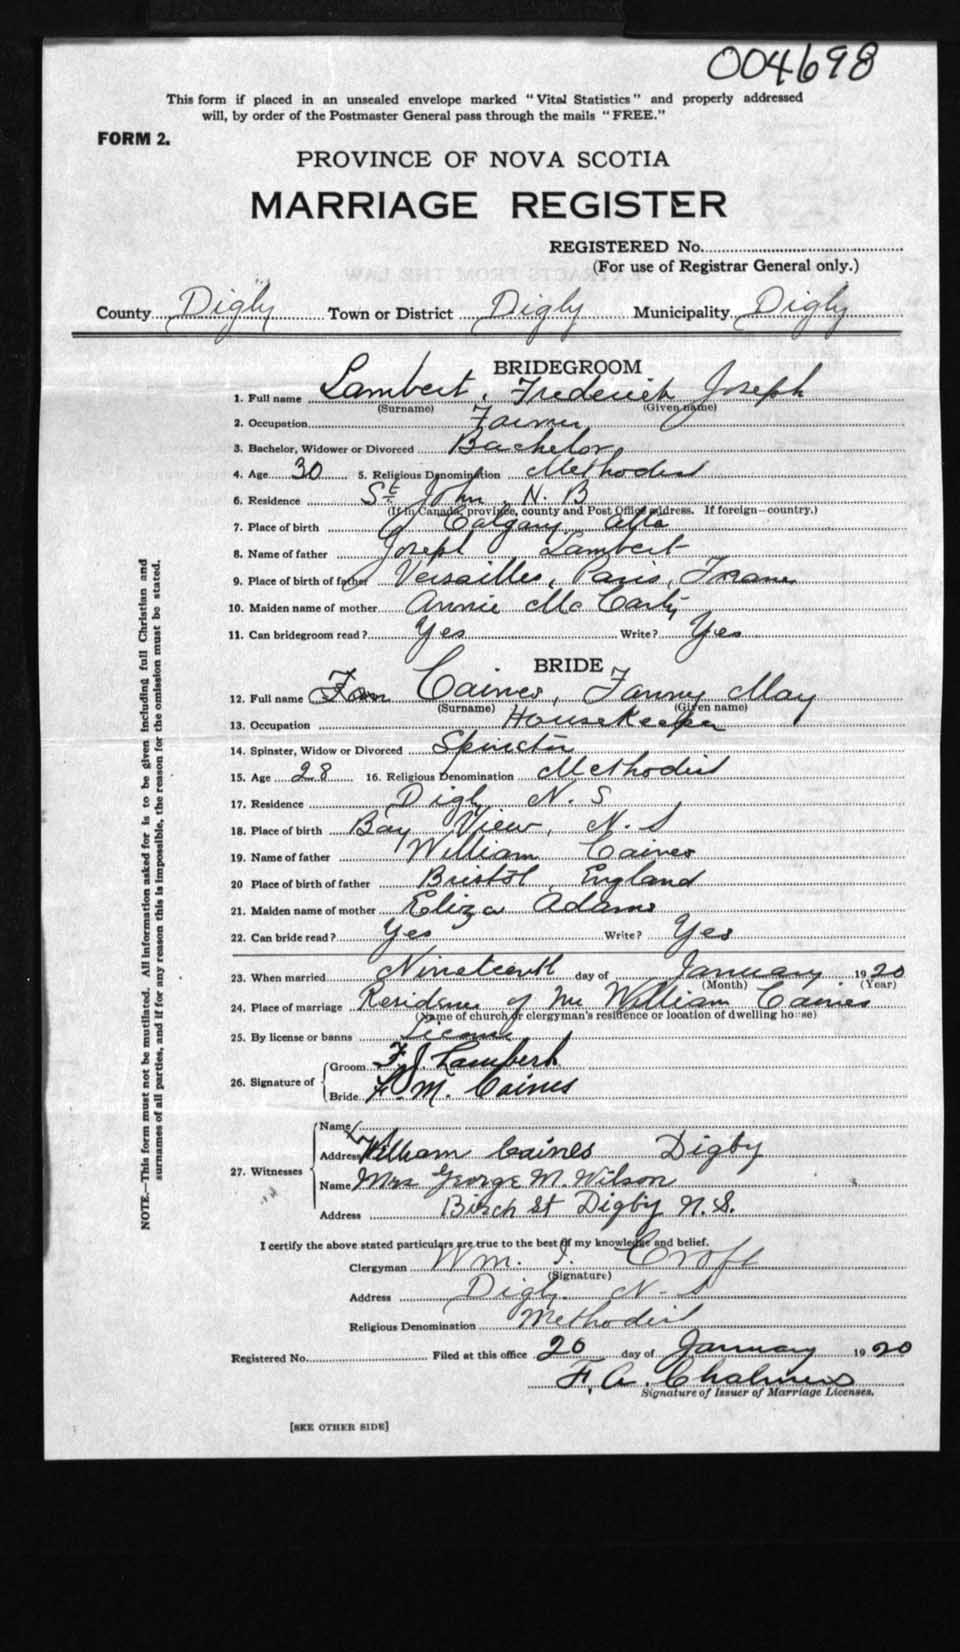 004698
This form if placed in an unsealed envelope marked "Vital Statistics" and properly addressed
will, by order of the Postmaster General pass through the mails "FREE."
FORM 2.
PROVINCE OF NOVA SCOTIA
MARRIAGE REGISTER
REGISTERED No.
(For use of Registrar General only.)
County Digby Town or District Digby Municipality Digby
BRIDEGROOM
1. Full name Lambert, Frederick Joseph
(Surname) (Given name)
2. Occupation Farmer
3. Bachelor, Widower or Divorced Bachelor
4. Age 30 5. Religious Denomination Methodist
6. Residence St John, N. B
(If in Canada, province, county and Post Office address. If foreign—country.)
7. Place of birth Calgary Alta
8. Name of father Joseph Lambert
9. Place of birth of father Versailles, Paris, France
10. Maiden name of mother Annie McCarty
11. Can bridegroom read? Yes Write? Yes
BRIDE
12. Full name Caines, Fanny May
(Surname) (Given name)
13. Occupation Housekeeper
14. Spinster, Widow or Divorced Spinster
15. Age 28 16. Religious Denomination Methodist
17. Residence Digby N. S
18. Place of birth Bay View, N. S
19. Name of father William Caines
20 Place of birth of father Bristol, England
21. Maiden name of mother Eliza Adams
22. Can bride read? Yes Write? Yes
23. When married Nineteenth day of January 1920
(Month) (Year)
24. Place of marriage Residence of Mr William Caines
(Name of church or clergyman's residence or location of dwelling house)
25. By license or banns License
26. Signature of
Groom F. J. Lambert
Bride F. M. Caines
27. Witnesses
Name
Address William Caines Digby
Name Mrs George M. Wilson
Address Birch St Digby N. S.
I certify the above stated particulars are true to the best of my knowledge and belief.
Clergyman Wm. I. Croft
(Signature)
Address Digby N. S
Religious Denomination Methodist
Registered No. Filed at this office 20 day of January 1920
F. A. Chalmers
Signature of Issuer of Marriage Licenses.
[SEE OTHER SIDE]
NOTE.—This form must not be mutilated. All information asked for is to be given including full Christian and
surnames of all parties, and if for any reason this is impossible, the reason for the omission must be stated.